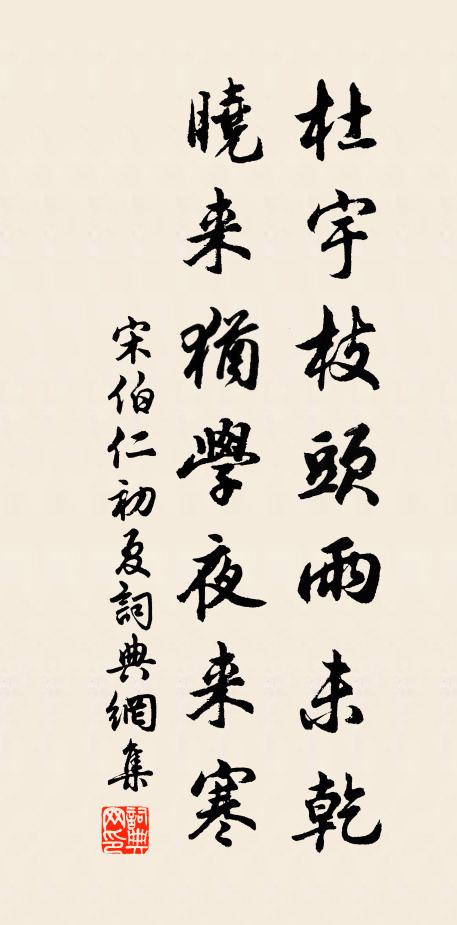 杜宇枝頭雨未乾
曉来猶學夜来寒
宋伯仁初夏詞典網集
詞典网印